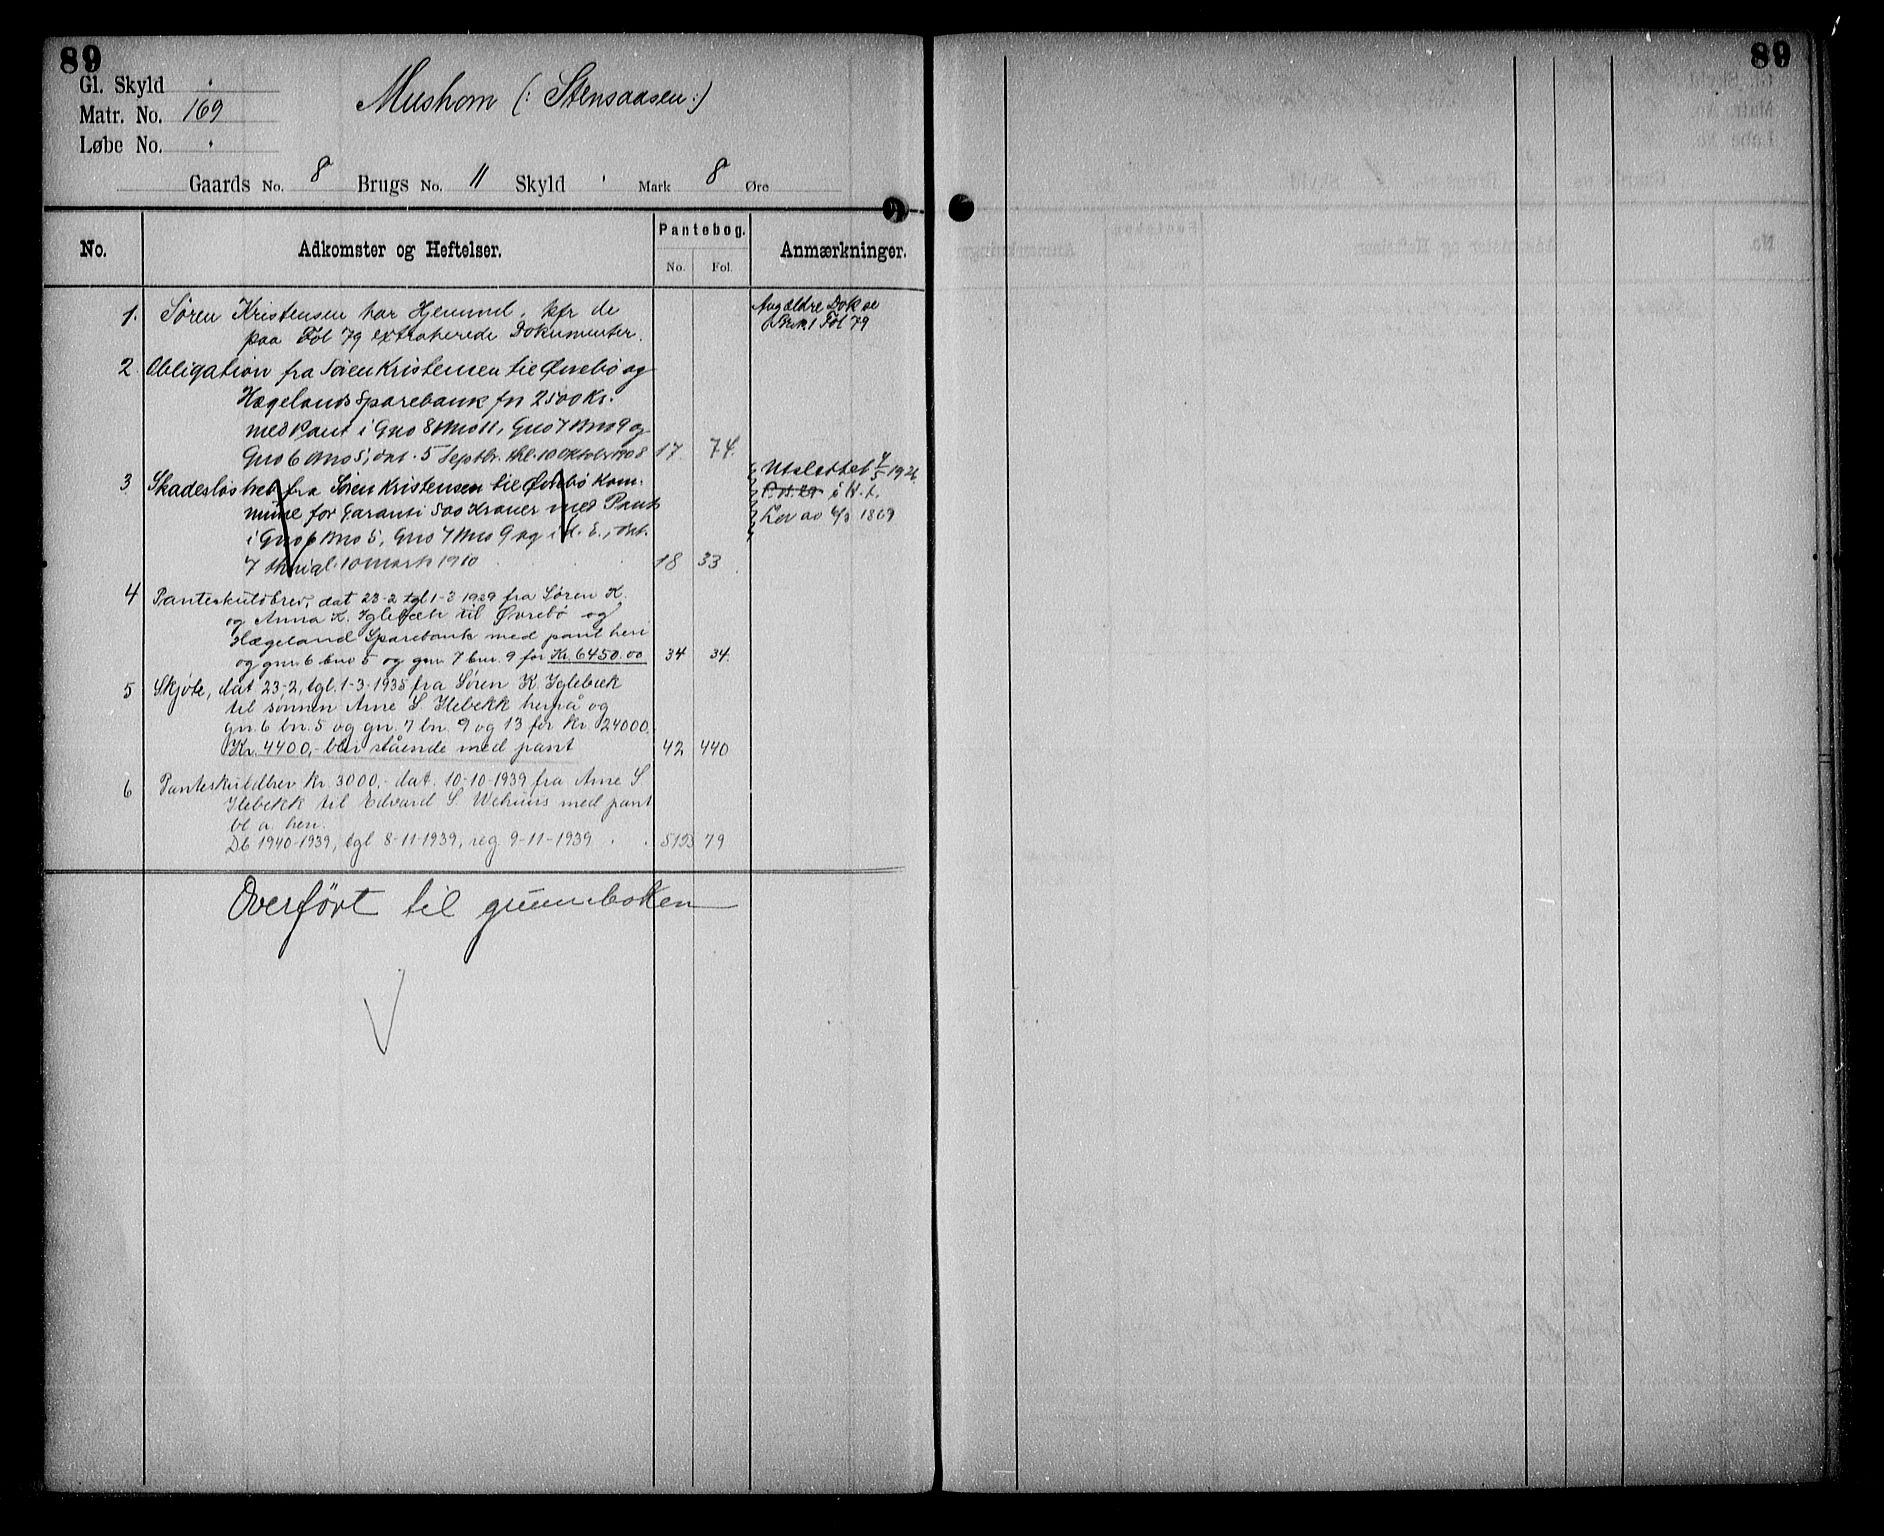 89
89
Gl. Skyld
Matr. No. 169
Løbe No.
Mushom (: Stensaasen :)
Gaards No. 8 Brugs No. 11 Skyld Mark 8 Øre
No.
Adkomster og Heftelser.
Pantebog.
No. Fol.
Anmærkninger.
1. Søren Kristensen har Hjemmel, kfr de
paa Fol 79 extraherede Dokumenter.
Ang ældre Dok se
Fol 79
2. Obligation fra Søren Kristensen til Øvrebø og
Hægelands Sparebank for 2500 Kr.
med Pant i Gno 8 Bno 11, Gno 7 Bno 9 og
Gno 6 Bno 5, dat. 5 Septbr. thl. 10 Oktober 1908 17 74.
3 Skadesløsbrev fra Søren Kristensen til Øvrebø Kom-
mune for Garanti 500 Kroner med Pant
i Gno 6 Bno 5, Gno 7 Bno 9 og i d. E., dat.
7 thingl. 10 marts 1910 18 33
Utslettet 4/5 1926
i H. t.
Lov av 1869
4 Panteskuldbrev, dat 23-2 tgl 1-3 1929 fra Søren K.
og Anna K. Iglebæk til Øvrebø og
Hægeland Sparebank med pant heri
og gnr. 6 bno 5 og gnr. 7 bnr. 9 for Kr. 6450.00 34 34.
5 Skjøte, dat 23-2, tgl. 1-3-1935 fra Søren K. Iglebæk
til sønnen Arne S. Ilebekk herpå og
gn. 6 bn. 5 og gn. 7 bn. 9 og 13 for kr. 24000.
Kr. 4400,- blir stående med pant 42 440
6 Panteskuldbrev kr. 3000,- dat. 10-10-1939 fra Arne S.
Ilebekk til Edvard S. med pant
bl. a. heri.
Db 1940-1939, tgl 8-11-1939, reg 9-11-1939 . . 51D 79
Overført til grunnboken